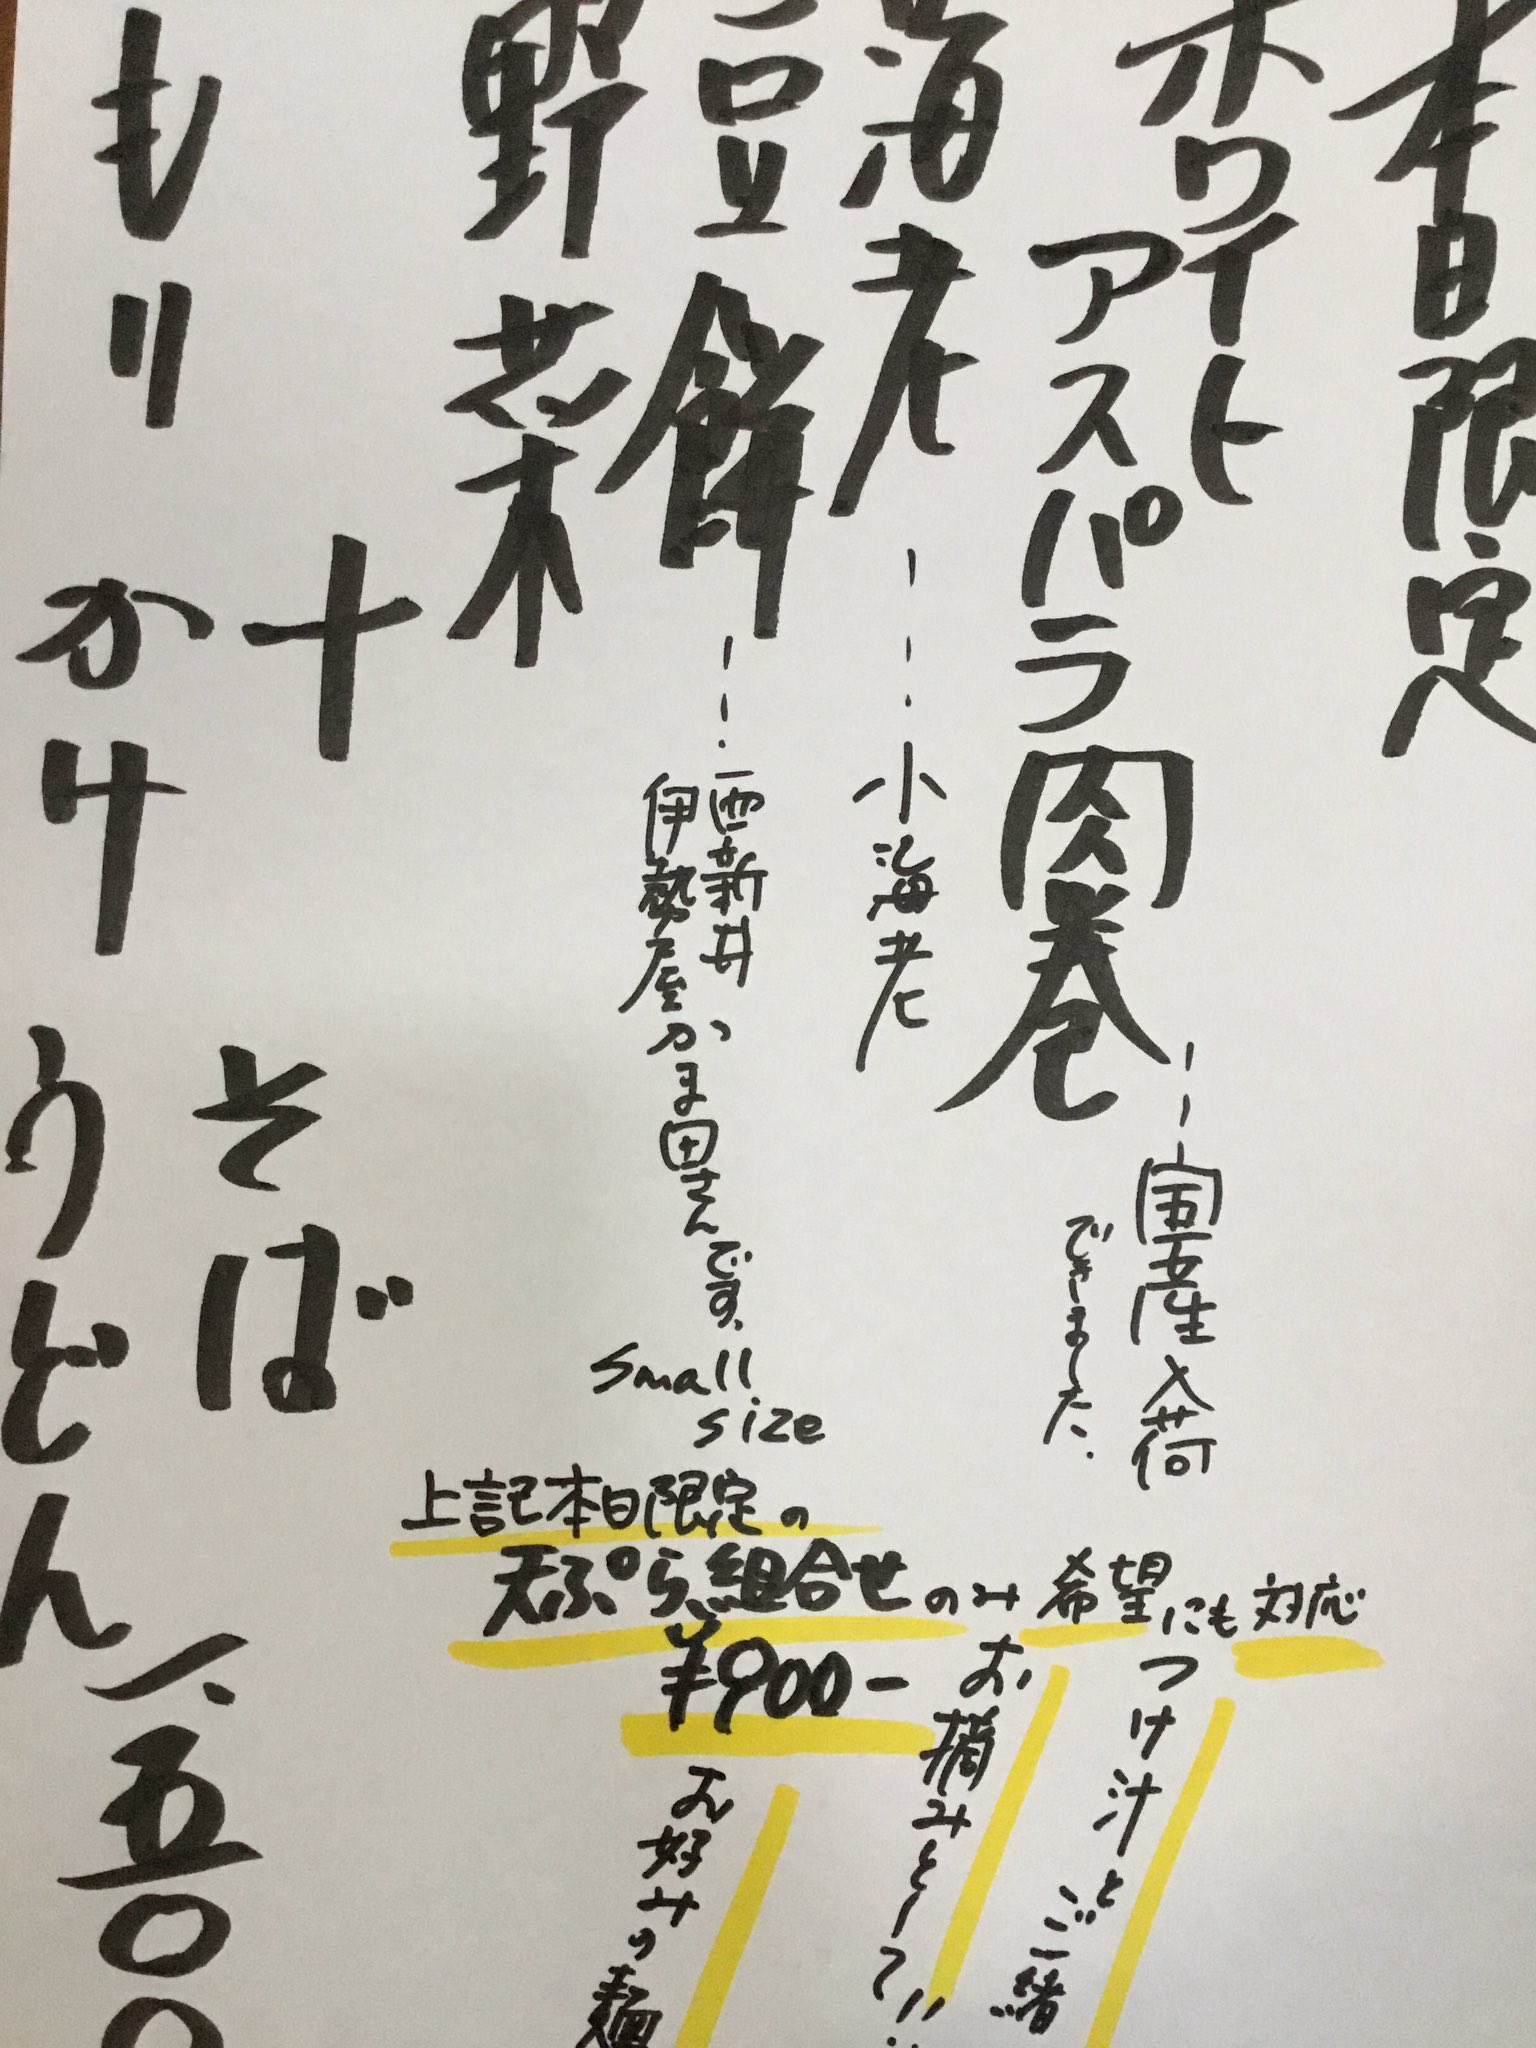 本日限定
ホワイト
アスパラ肉巻
--富良産入荷
できました.
海老---小海老
豆餅---西新井
伊勢屋かま田さんです、
small
size
野菜
十
そば
もり かけ うどん 一、五〇〇
上記本日限定の
天ぷら組合せのみ希望にも対応
¥900-
つけ汁と
ご一緒
お摘みとして!!
お好みの麺